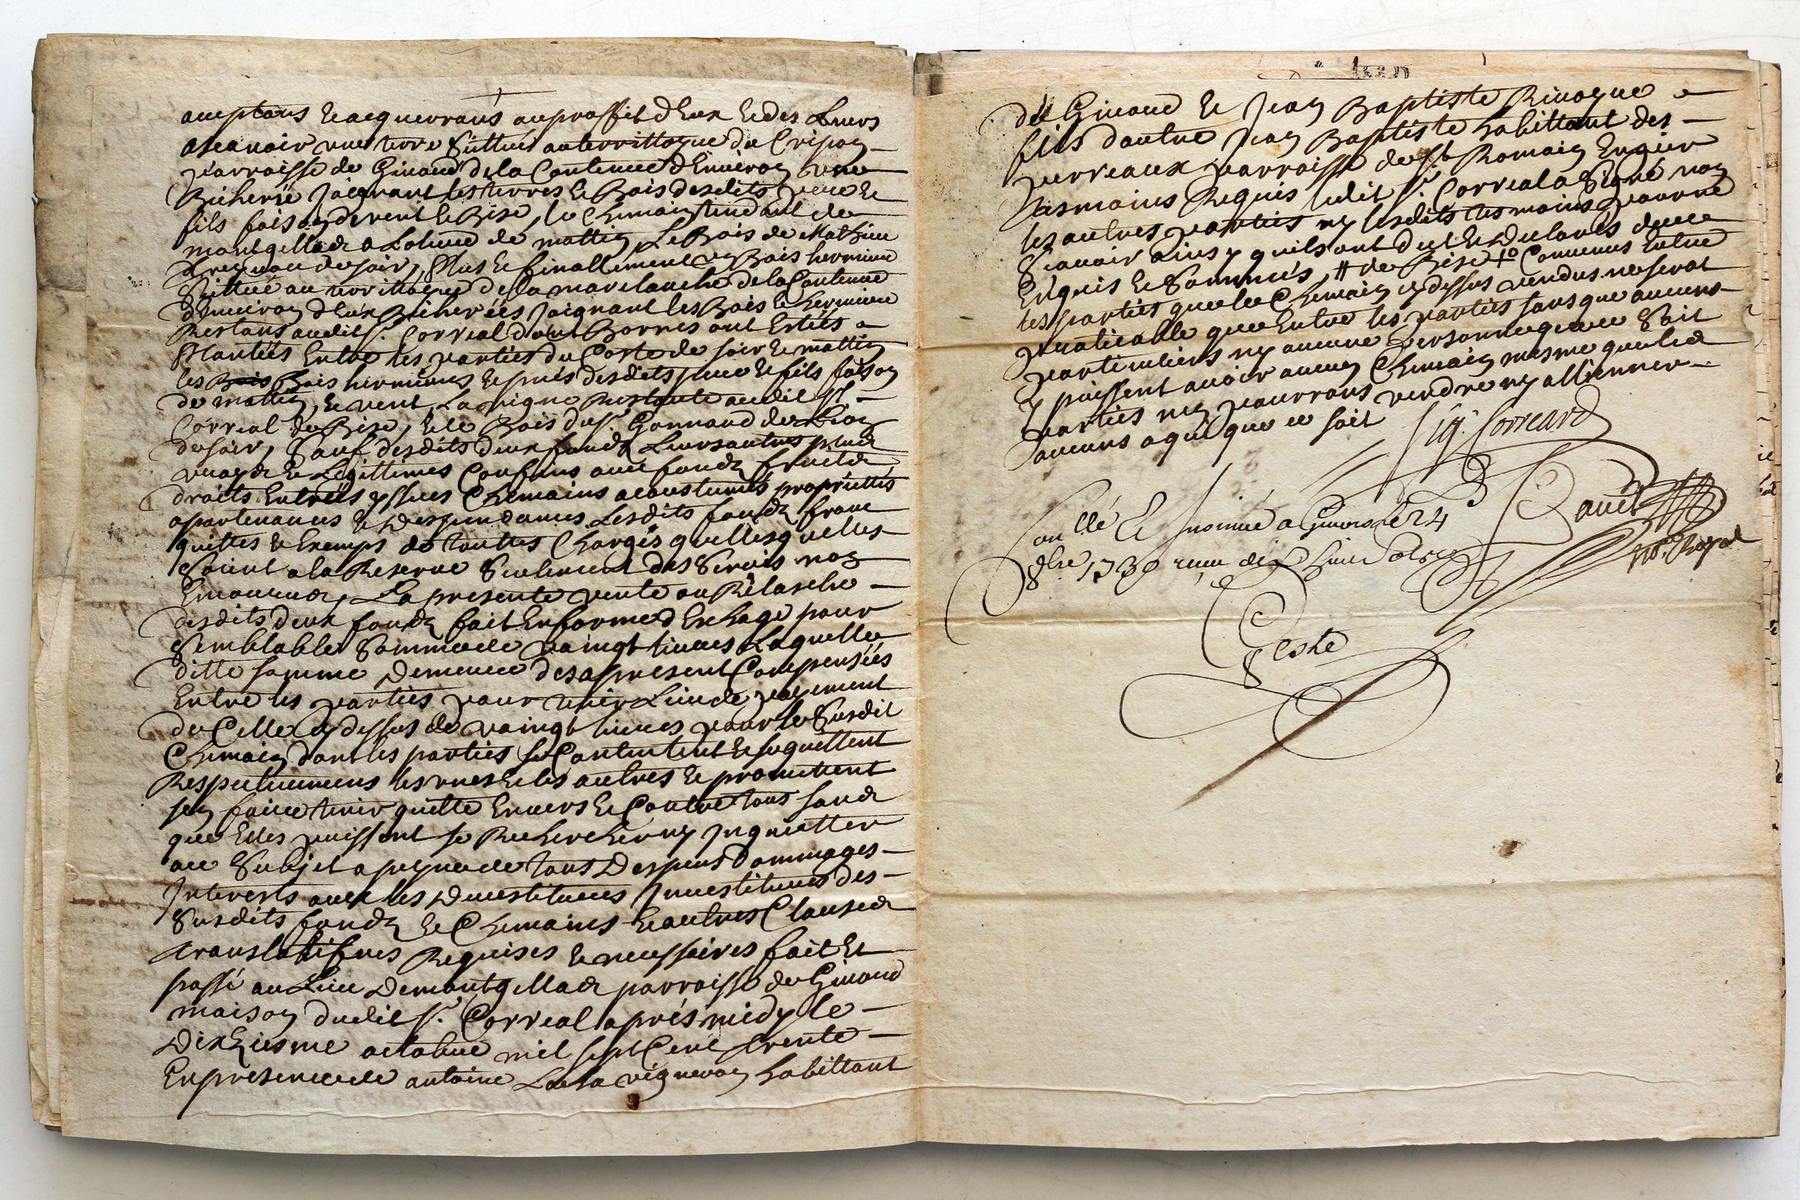 acceptans et acquerrans au proffit d'Eux et des Leurs
ascavoir une terre scittuée au territtoire du Crispoy
parroisse de Givord de la Contenue d'Environ une
Bicherée Joignant les terres et Bois desdits pere et
fils faisan de vent et Bise, le Chemain tendant de
montgellard a de mattin, Le Bois de Mathieu
de soir, Plus et finallement un Bois hermine
scittué au territtoire de la mareslanche de la Contenue
d'Environ deux Bicherées Joignant les Bois et hermine
Restans audit Sr. Correal dont Bornes ont Estées
Plantées Entre les parties du Costé de soir et mattin
les Bois hermines et prés desdits pere et fils faison
de mattin, et vent La vigne Restante audit Sr.
Correal de Bise, et le Bois du Sr. Gonnard de
de soir, Sauf desdits deux fonds Leurs autres plus
vrays et Legittimes Confins avec fonds fruits
droits Entrées yssües Chemains acoustumés proprietés
apartenances et Despendances Lesdits fonds franc
quittes et Exemps de touttes Charges quelles quelles
soient a la Reserve seulement des Servis noz
La presente vente ou Relasche
desdits deux fonds fait En forme d'Eschage pour
semblable Somme de vaingt livres Laquelle
ditte somme demeure des apresent Compensées
Entre les parties pour tenir Lieu de payement
de Celle cy dessus de vaingt livres pour le susdit
Chemain dont les parties se Contentent et se quittent
Respectivement les unes et les autres et promettent
s'en faire tenir quitte Envers et Contre tous sans
que Elles puissent se Rechercher ny Inquietter
au Subjet a peyne de tous Despens dommages
Interests avec les Devestitures Investitures des
susdits fonds et Chemains et autres Clauses
translatifves Requises et necessaires fait et
passé au Lieu de montgellard parroisse de Givord
maison dudit Sr. Correal après midy le
Dixhiesme octobre mil sept Cent trente
En presence de antoine vigneron habittant
de Givord et Jean Baptiste Rivoyre
fils d'autre Jean Baptiste habittant des
perreaux parroisse de St Romain En gier
tesmoins Requis ledit Sr. Correal a signé non
les autres parties ny lesdits tesmoins pour ne
scavoir ainsy quils ont dit et Declarés de ce
Enquis et sommés, # de Bise + Convenus Entre
les parties que le Chemain cy dessus vendus ne serat
praticable que Entre les parties sans que aucuns
particuliers ny aucune personne que ce soit
y puissent avoir aucun Chemain mesme que les
parties n'en pourrons vendre ny allienner
aucuns a qui que ce soit Sig Correard
Conllé Et Insinué a Givors le 24 David
8bre 1730 reçu dix huit sols nore. Royal
Ceste